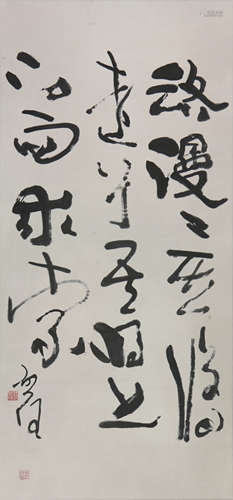 路漫漫其修
遠兮吾將上
下而求索